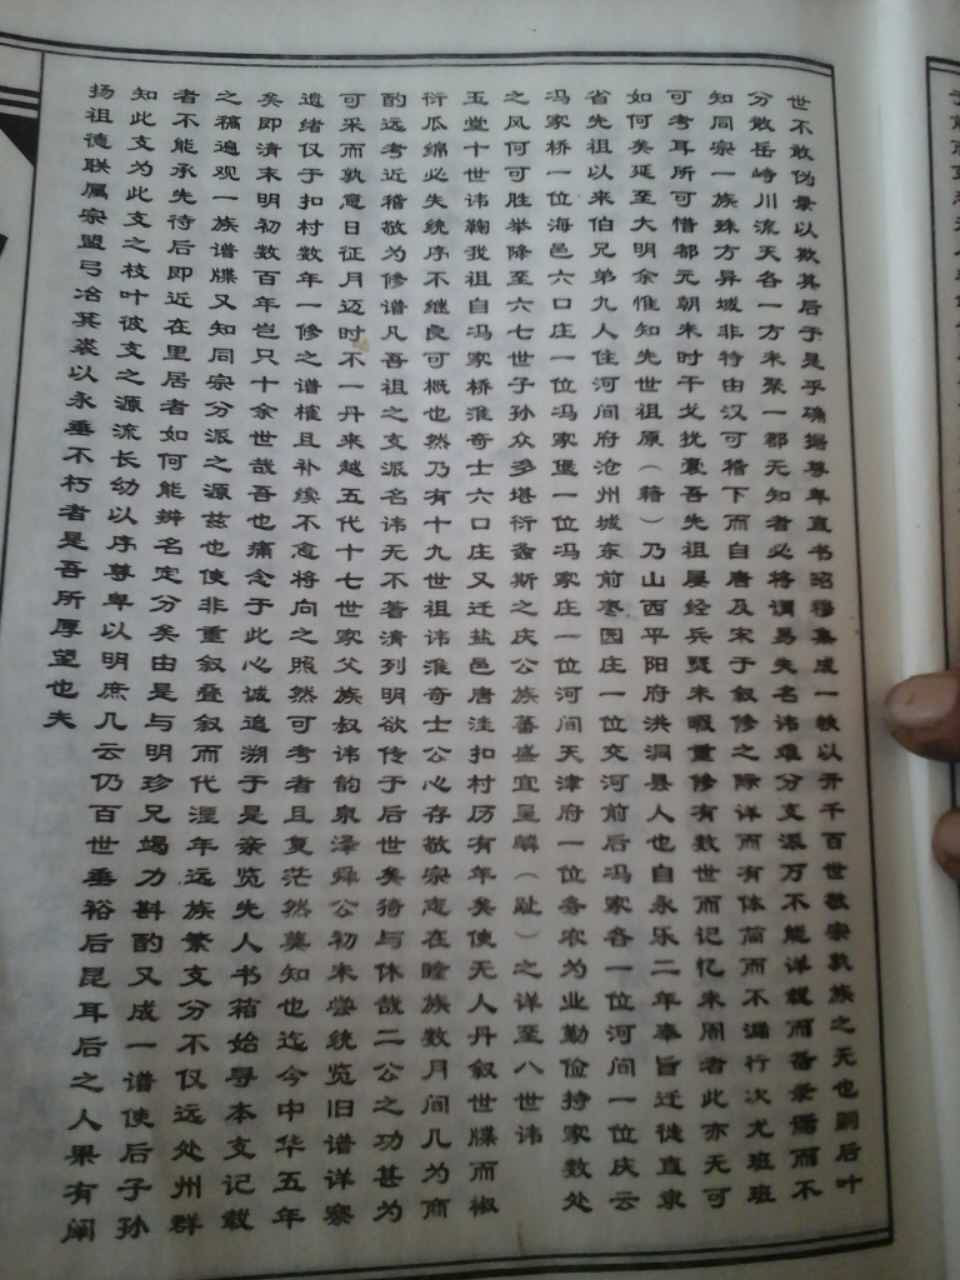 世不敢伪录以欺其后于是乎确据尊卑直书昭穆集成一帙以开千百世敬宗孰族之无也嗣后叶
分散岳峙川流天各一方来聚一郡无知者必将谓易失名讳难分支派万不能详载而备录谱而不
知同宗一族殊方异域非特由汉可稽下而自唐及宋于叙修之际详而有体简而不漏行次尤班班
可考耳所可惜都元朝末时干戈扰襄吾先祖屡经兵燹未暇重修有数世而记忆未周者此亦无可
如何矣延至大明余惟知先世祖原（籍）乃山西平阳府洪洞县人也自永乐二年奉旨迁徙直隶
省先祖以来伯兄弟九人住河间府沧州城东前枣园庄一位交河前后冯家各一位河间一位庆云
冯家桥一位海邑六口庄一位冯家堡一位冯家庄一位河间天津府一位务农为业勤俭持家数处
之风何可胜举降至六七世子孙众多堪衍螽斯之庆公族蕃盛宜呈麟（趾）之详至八世讳
玉堂十世讳鞠我祖自冯家桥淮奇士六口庄又迁盐邑唐洼扣村历有年矣使无人丹叙世牒而椒
衍瓜绵必失统序不继良可概也然乃有十九世祖讳淮奇士公心存敬宗志在睦族数月间几为商
酌远考近稽敬为修谱凡吾祖之支派名讳无不著清列明欲传于后世矣猗与休哉二公之功甚为
可采而孰意日征月迈时不一丹来越五代十七世家父族叔讳韵泉泽舜公初未尝统览旧谱详察
遗绪仅于扣村数年一修之谱权且补续不愈将向之照然可考者且复茫然莫知也迄今中华五年
矣即清末明初数百年岂只十余世哉吾也痛念于此心诚追溯于是亲览先人书箱始寻本支记载
之稿遍观一族谱牒又知同宗分派之源兹也使非重叙叠叙而代湮年远族繁支分不仅远处州群
者不能承先待后即近在里居者如何能辨名定分矣由是与明珍兄竭力斟酌又成一谱使后子孙
知此支为此支之枝叶彼支之源流长幼以序尊卑以明庶几云仍百世垂裕后昆耳后之人果有阐
扬祖德联属宗盟弓冶箕裘以永垂不朽者是吾所厚望也夫